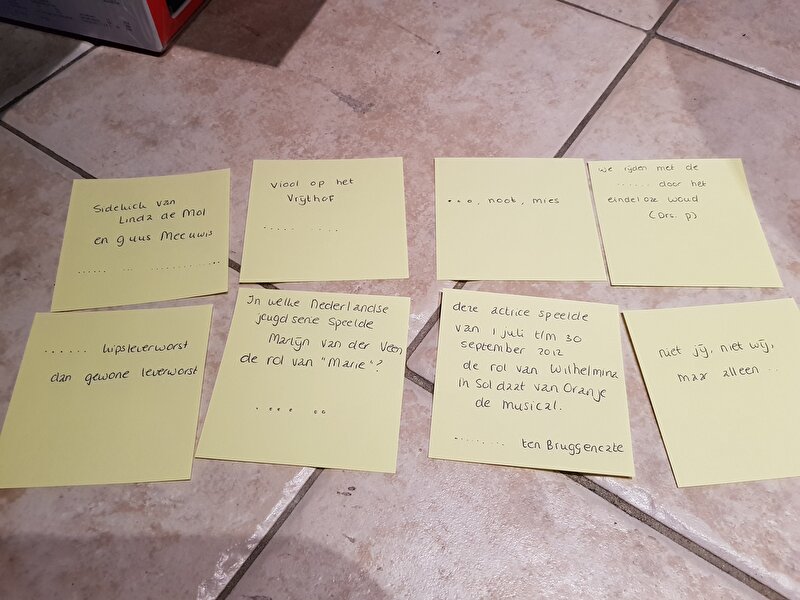 Sidekick van
Linda de Mol
en guus Meeuwis
...... ... ..............
viool op het
Vrijthof
..... ....
..., noot, mies
we rijden met de
...... door het
eindeloze woud
(Drs. p)
...... kipsleverworst
dan gewone leverworst
In welke Nederlandse
jeugdserie speelde
Martijn van der Veen
de rol van "Marie"?
. ... ..
deze actrice speelde
van 1 juli t/m 30
september 2012
de rol van Wilhelmina
in Soldaat van Oranje
de musical.
........ ten Bruggencate
niet jij, niet wij,
maar alleen ..